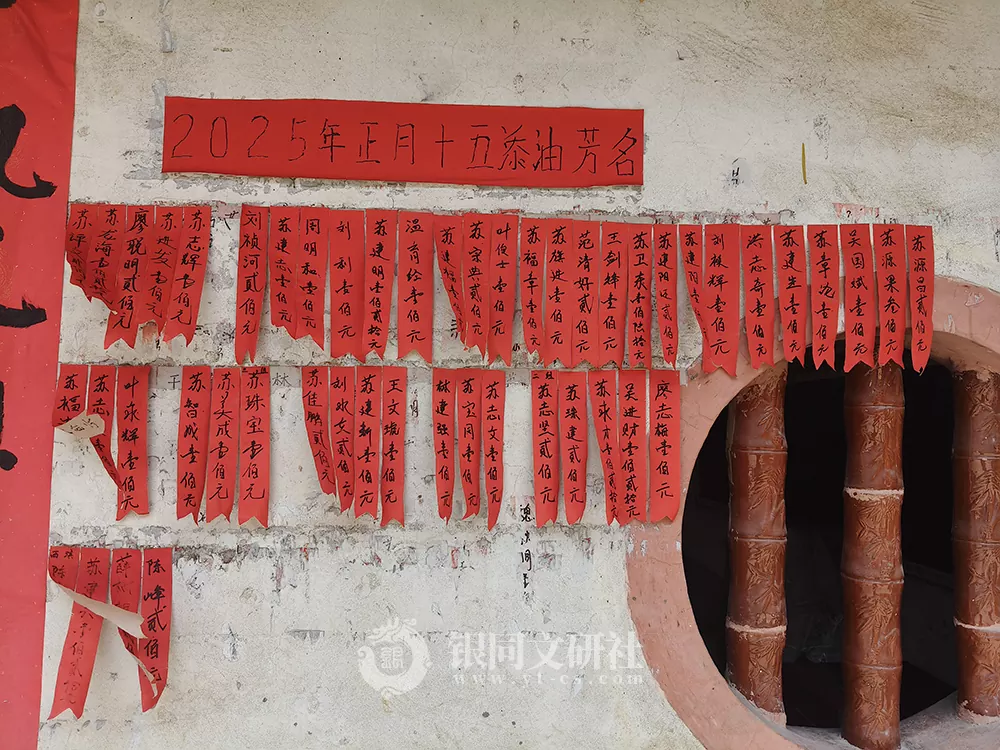 2025年正月十五添油芳名
苏源昌贰佰元
苏源果叁佰元
吴国斌壹佰元
苏章沱壹佰元
苏建生壹佰元
洪志奇壹佰元
刘振辉壹佰元
苏建羽壹
苏建阳贰佰元
苏卫东壹佰陆拾元
王剑辉壹佰元
范清好贰佰元
苏徐进壹佰元
苏福章壹佰元
叶俊士壹佰元
苏宗典贰佰元
苏建
温育经壹佰元
苏建明壹佰贰拾元
刘利壹佰元
周明和壹佰元
苏建志壹佰元
刘祯河贰佰元
苏志辉壹佰元
苏
廖聪明贰佰元
苏志海壹佰元
苏
廖志梅壹佰元
吴进财壹佰贰拾元
苏永才壹佰贰拾元
苏琼建贰佰元
苏志坚贰佰元
苏志文壹佰元
苏宝同壹佰元
林建强壹佰元
王文瑞壹佰元
苏建新壹佰元
刘水文贰佰元
苏佳鹏贰佰元
林
苏珠宝壹佰元
苏美成壹佰元
苏智成壹佰元
叶永辉壹佰元
苏志
苏福
陈峰贰佰元
薛
苏
陈
银同文研社
www.yt-cs.com